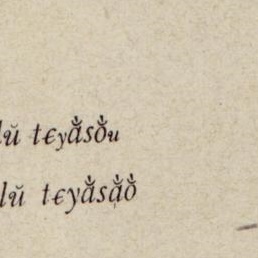 lŭ tєyǎ̇sǒ̇u
lŭ tєyǎ̇sạ̌̇ǒ̇